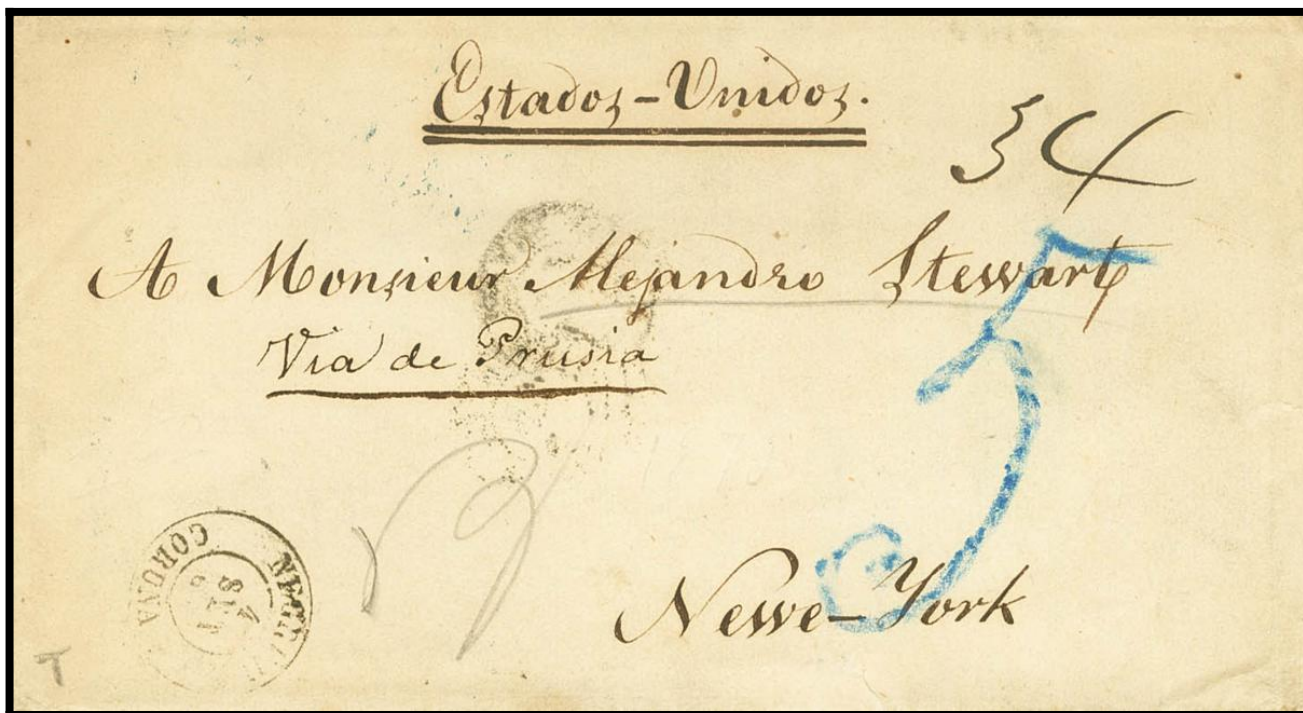 Estados-Unidos.
34
A Monsieur Alejandro Stewart
Via de Prusia
5
Newe-York
CORUÑA
T